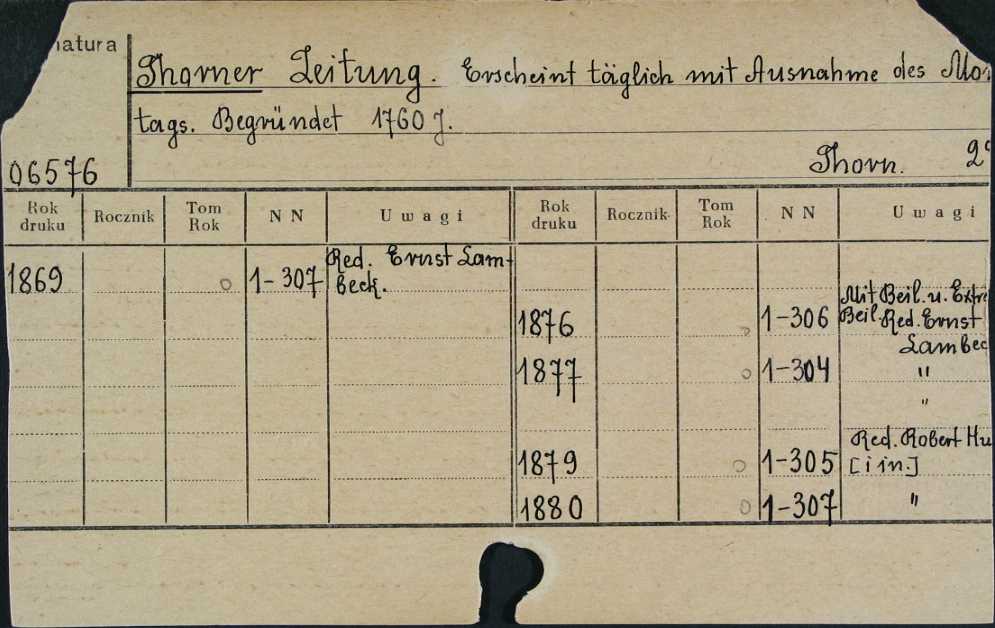 natura
Thorner Zeitung. Erscheint täglich mit Ausnahme des Mon
tags. Begründet 1760 J.
06576
Thorn. 2°
Rok druku Rocznik Tom Rok N N Uwagi Rok druku Rocznik Tom Rok N N Uwagi
1869 o 1-307 Red. Ernst Lam-
beck.
Mit Beil. u. Extra
1876 o 1-306 Beil. Red. Ernst
Lambec
1877 o 1-304 "
"
Red. Robert Hu
1879 o 1-305 [i in.]
1880 o 1-307 "